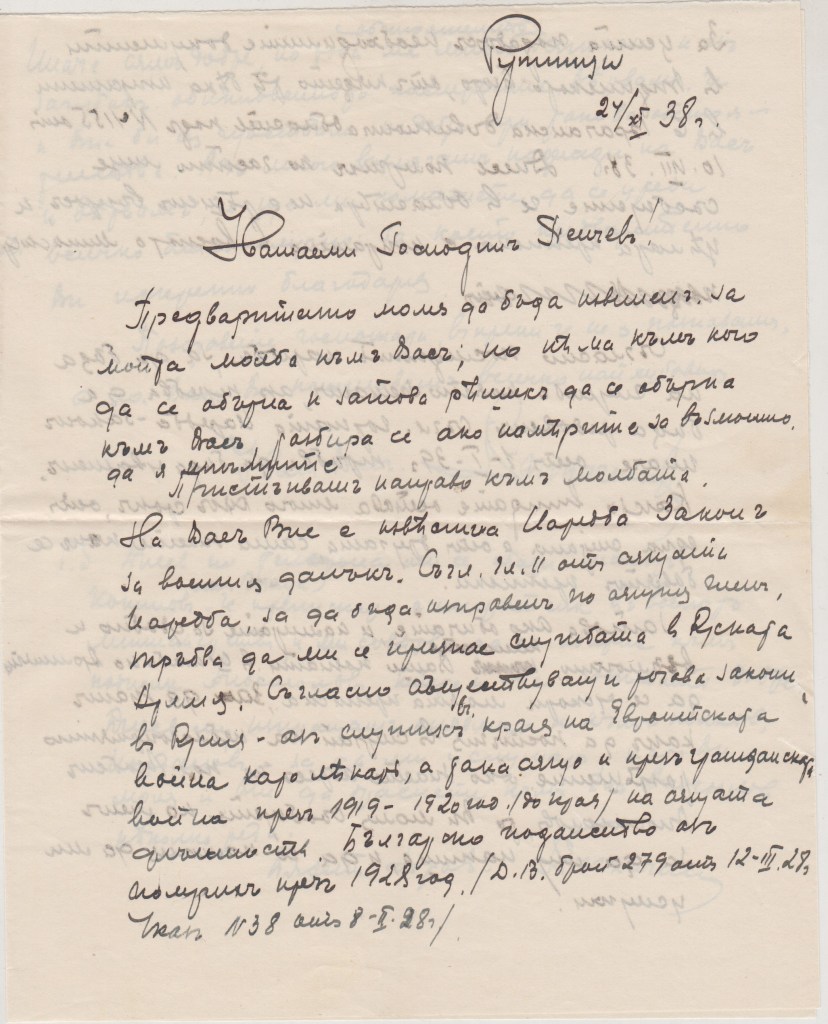 Рупци
24/XI 38 г.
Уважаеми Господинъ Пенчевъ!
Предварително моля да бъда извиненъ за
моята молба къмъ Васъ; но нѣма къмъ кого
да се обърна и затова рѣшихъ да се обърна
къмъ Васъ, разбира се ако намѣрите за възможно
да я изпълните.
Пристѫпвамъ направо къмъ молбата.
На Васъ Вие е извѣстна Наредба Законъ
за военния данъкъ. Съгл. чл. 11 отъ същата
Наредба, за да бъда оправенъ по същия членъ,
трѣбва да ми се признае службата в Руската
Армия. Съгласно съществуващи тогава закони
в Русия - азъ служихъ въ края на Европейската
война като лѣкарь, а така също и презъ гражданската
война презъ 1919 - 1920 год. /до края/ на същата
длъжность. Българско поданство азъ
получихъ презъ 1928 год. /Д.В. брой 279 отъ 12-III.28 г
Указъ N 38 отъ 8-II.28 г/